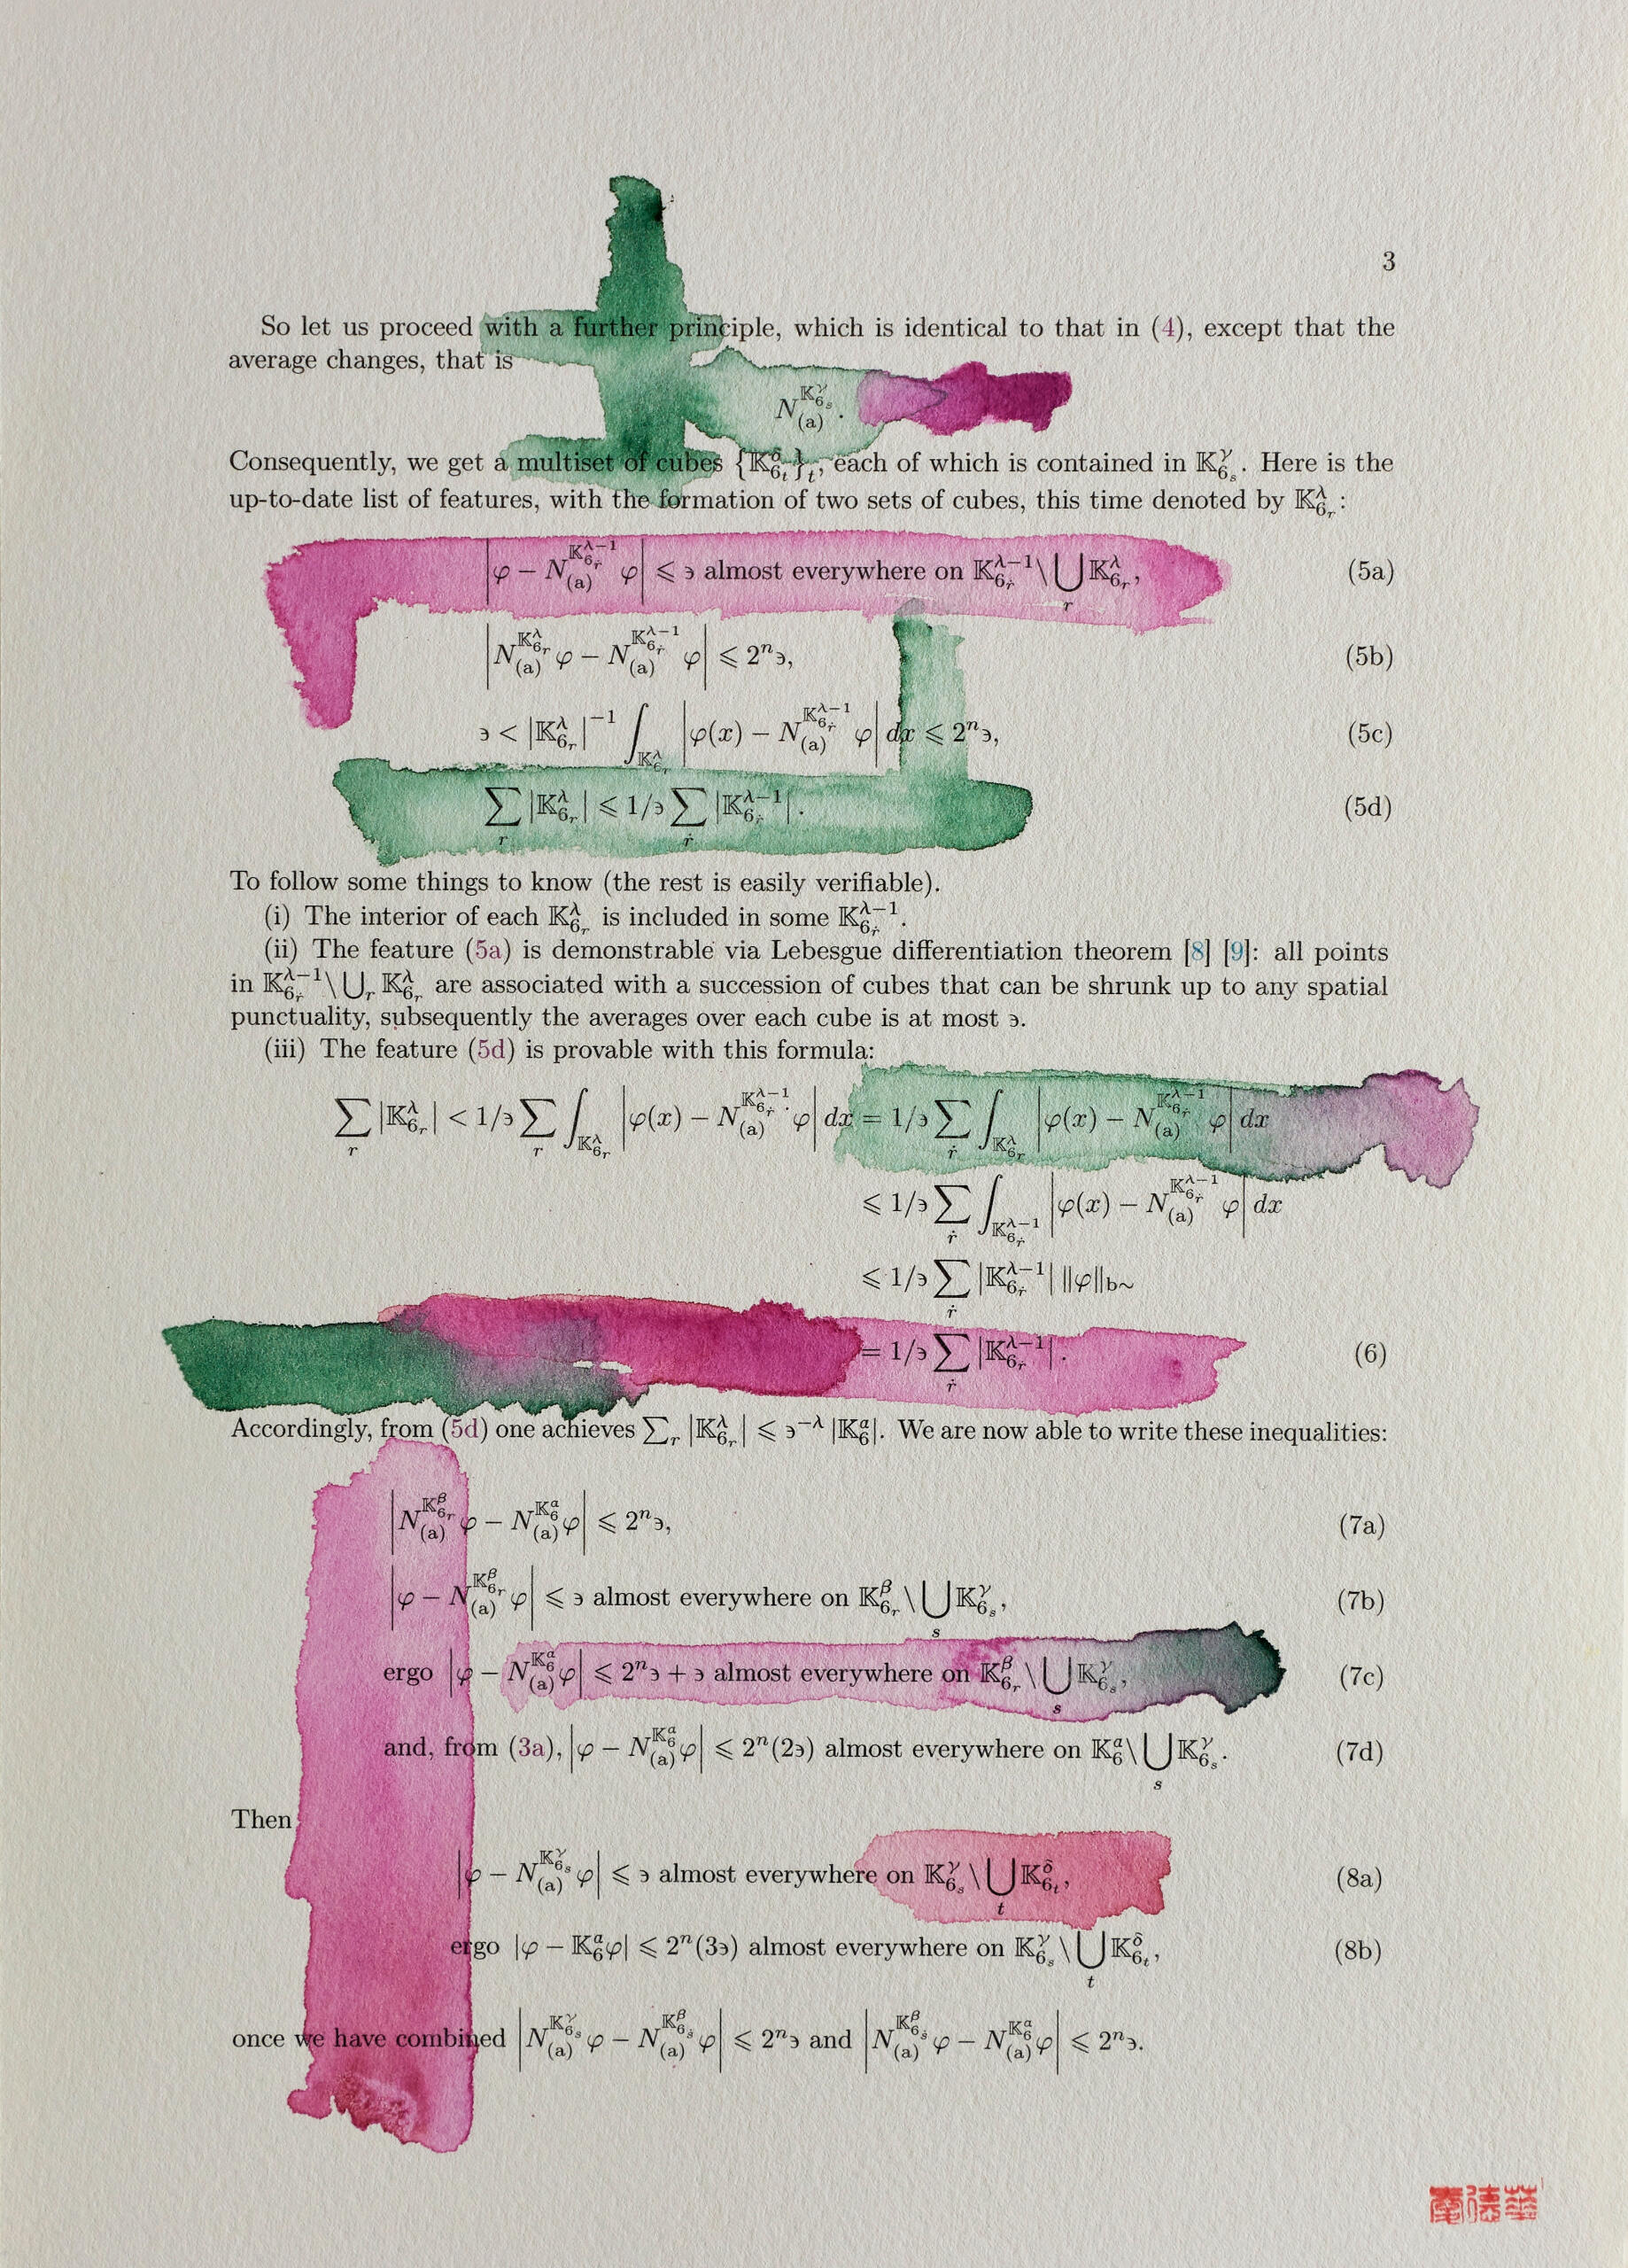 3
So let us proceed with a further principle, which is identical to that in (4), except that the
average changes, that is
N_{(a)}^{𝕂_{6_s}^γ}.
Consequently, we get a multiset of cubes {𝕂_{6_t}^δ}_t, each of which is contained in 𝕂_{6_s}^γ. Here is the
up-to-date list of features, with the formation of two sets of cubes, this time denoted by 𝕂_{6_r}^λ:
|φ − N_{(a)}^{𝕂_{6_ṙ}^{λ−1}} φ| ⩽ ϶ almost everywhere on 𝕂_{6_ṙ}^{λ−1} \ ⋃_r 𝕂_{6_r}^λ, (5a)
|N_{(a)}^{𝕂_{6_r}^λ} φ − N_{(a)}^{𝕂_{6_ṙ}^{λ−1}} φ| ⩽ 2^n ϶, (5b)
϶ < |𝕂_{6_r}^λ|^{−1} ∫_{𝕂_{6_r}^λ} |φ(x) − N_{(a)}^{𝕂_{6_ṙ}^{λ−1}} φ| dx ⩽ 2^n ϶, (5c)
∑_r |𝕂_{6_r}^λ| ⩽ 1/϶ ∑_ṙ |𝕂_{6_ṙ}^{λ−1}|. (5d)
To follow some things to know (the rest is easily verifiable).
(i) The interior of each 𝕂_{6_r}^λ is included in some 𝕂_{6_ṙ}^{λ−1}.
(ii) The feature (5a) is demonstrable via Lebesgue differentiation theorem [8] [9]: all points
in 𝕂_{6_ṙ}^{λ−1} \ ⋃_r 𝕂_{6_r}^λ are associated with a succession of cubes that can be shrunk up to any spatial
punctuality, subsequently the averages over each cube is at most ϶.
(iii) The feature (5d) is provable with this formula:
∑_r |𝕂_{6_r}^λ| < 1/϶ ∑_r ∫_{𝕂_{6_r}^λ} |φ(x) − N_{(a)}^{𝕂_{6_ṙ}^{λ−1}} φ| dx = 1/϶ ∑_ṙ ∫_{𝕂_{6_r}^λ} |φ(x) − N_{(a)}^{𝕂_{6_ṙ}^{λ−1}} φ| dx
⩽ 1/϶ ∑_ṙ ∫_{𝕂_{6_ṙ}^{λ−1}} |φ(x) − N_{(a)}^{𝕂_{6_ṙ}^{λ−1}} φ| dx
⩽ 1/϶ ∑_ṙ |𝕂_{6_ṙ}^{λ−1}| ‖φ‖_{b∼}
= 1/϶ ∑_ṙ |𝕂_{6_ṙ}^{λ−1}|. (6)
Accordingly, from (5d) one achieves ∑_r |𝕂_{6_r}^λ| ⩽ ϶^{−λ} |𝕂_6^α|. We are now able to write these inequalities:
|N_{(a)}^{𝕂_{6_r}^β} φ − N_{(a)}^{𝕂_6^α} φ| ⩽ 2^n ϶, (7a)
|φ − N_{(a)}^{𝕂_{6_r}^β} φ| ⩽ ϶ almost everywhere on 𝕂_{6_r}^β \ ⋃_s 𝕂_{6_s}^γ, (7b)
ergo |φ − N_{(a)}^{𝕂_6^α} φ| ⩽ 2^n ϶ + ϶ almost everywhere on 𝕂_{6_r}^β \ ⋃_s 𝕂_{6_s}^γ, (7c)
and, from (3a), |φ − N_{(a)}^{𝕂_6^α} φ| ⩽ 2^n(2϶) almost everywhere on 𝕂_6^α \ ⋃_s 𝕂_{6_s}^γ. (7d)
Then
|φ − N_{(a)}^{𝕂_{6_s}^γ} φ| ⩽ ϶ almost everywhere on 𝕂_{6_s}^γ \ ⋃_t 𝕂_{6_t}^δ, (8a)
ergo |φ − 𝕂_6^α φ| ⩽ 2^n(3϶) almost everywhere on 𝕂_{6_s}^γ \ ⋃_t 𝕂_{6_t}^δ, (8b)
once we have combined |N_{(a)}^{𝕂_{6_s}^γ} φ − N_{(a)}^{𝕂_{6_ṡ}^β} φ| ⩽ 2^n ϶ and |N_{(a)}^{𝕂_{6_ṡ}^β} φ − N_{(a)}^{𝕂_6^α} φ| ⩽ 2^n ϶.